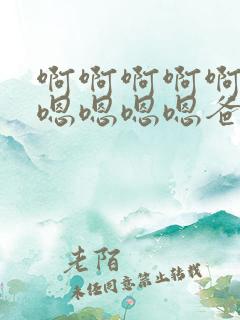 啊啊啊啊啊
嗯嗯嗯嗯爸
老陌
未经同意禁止转载